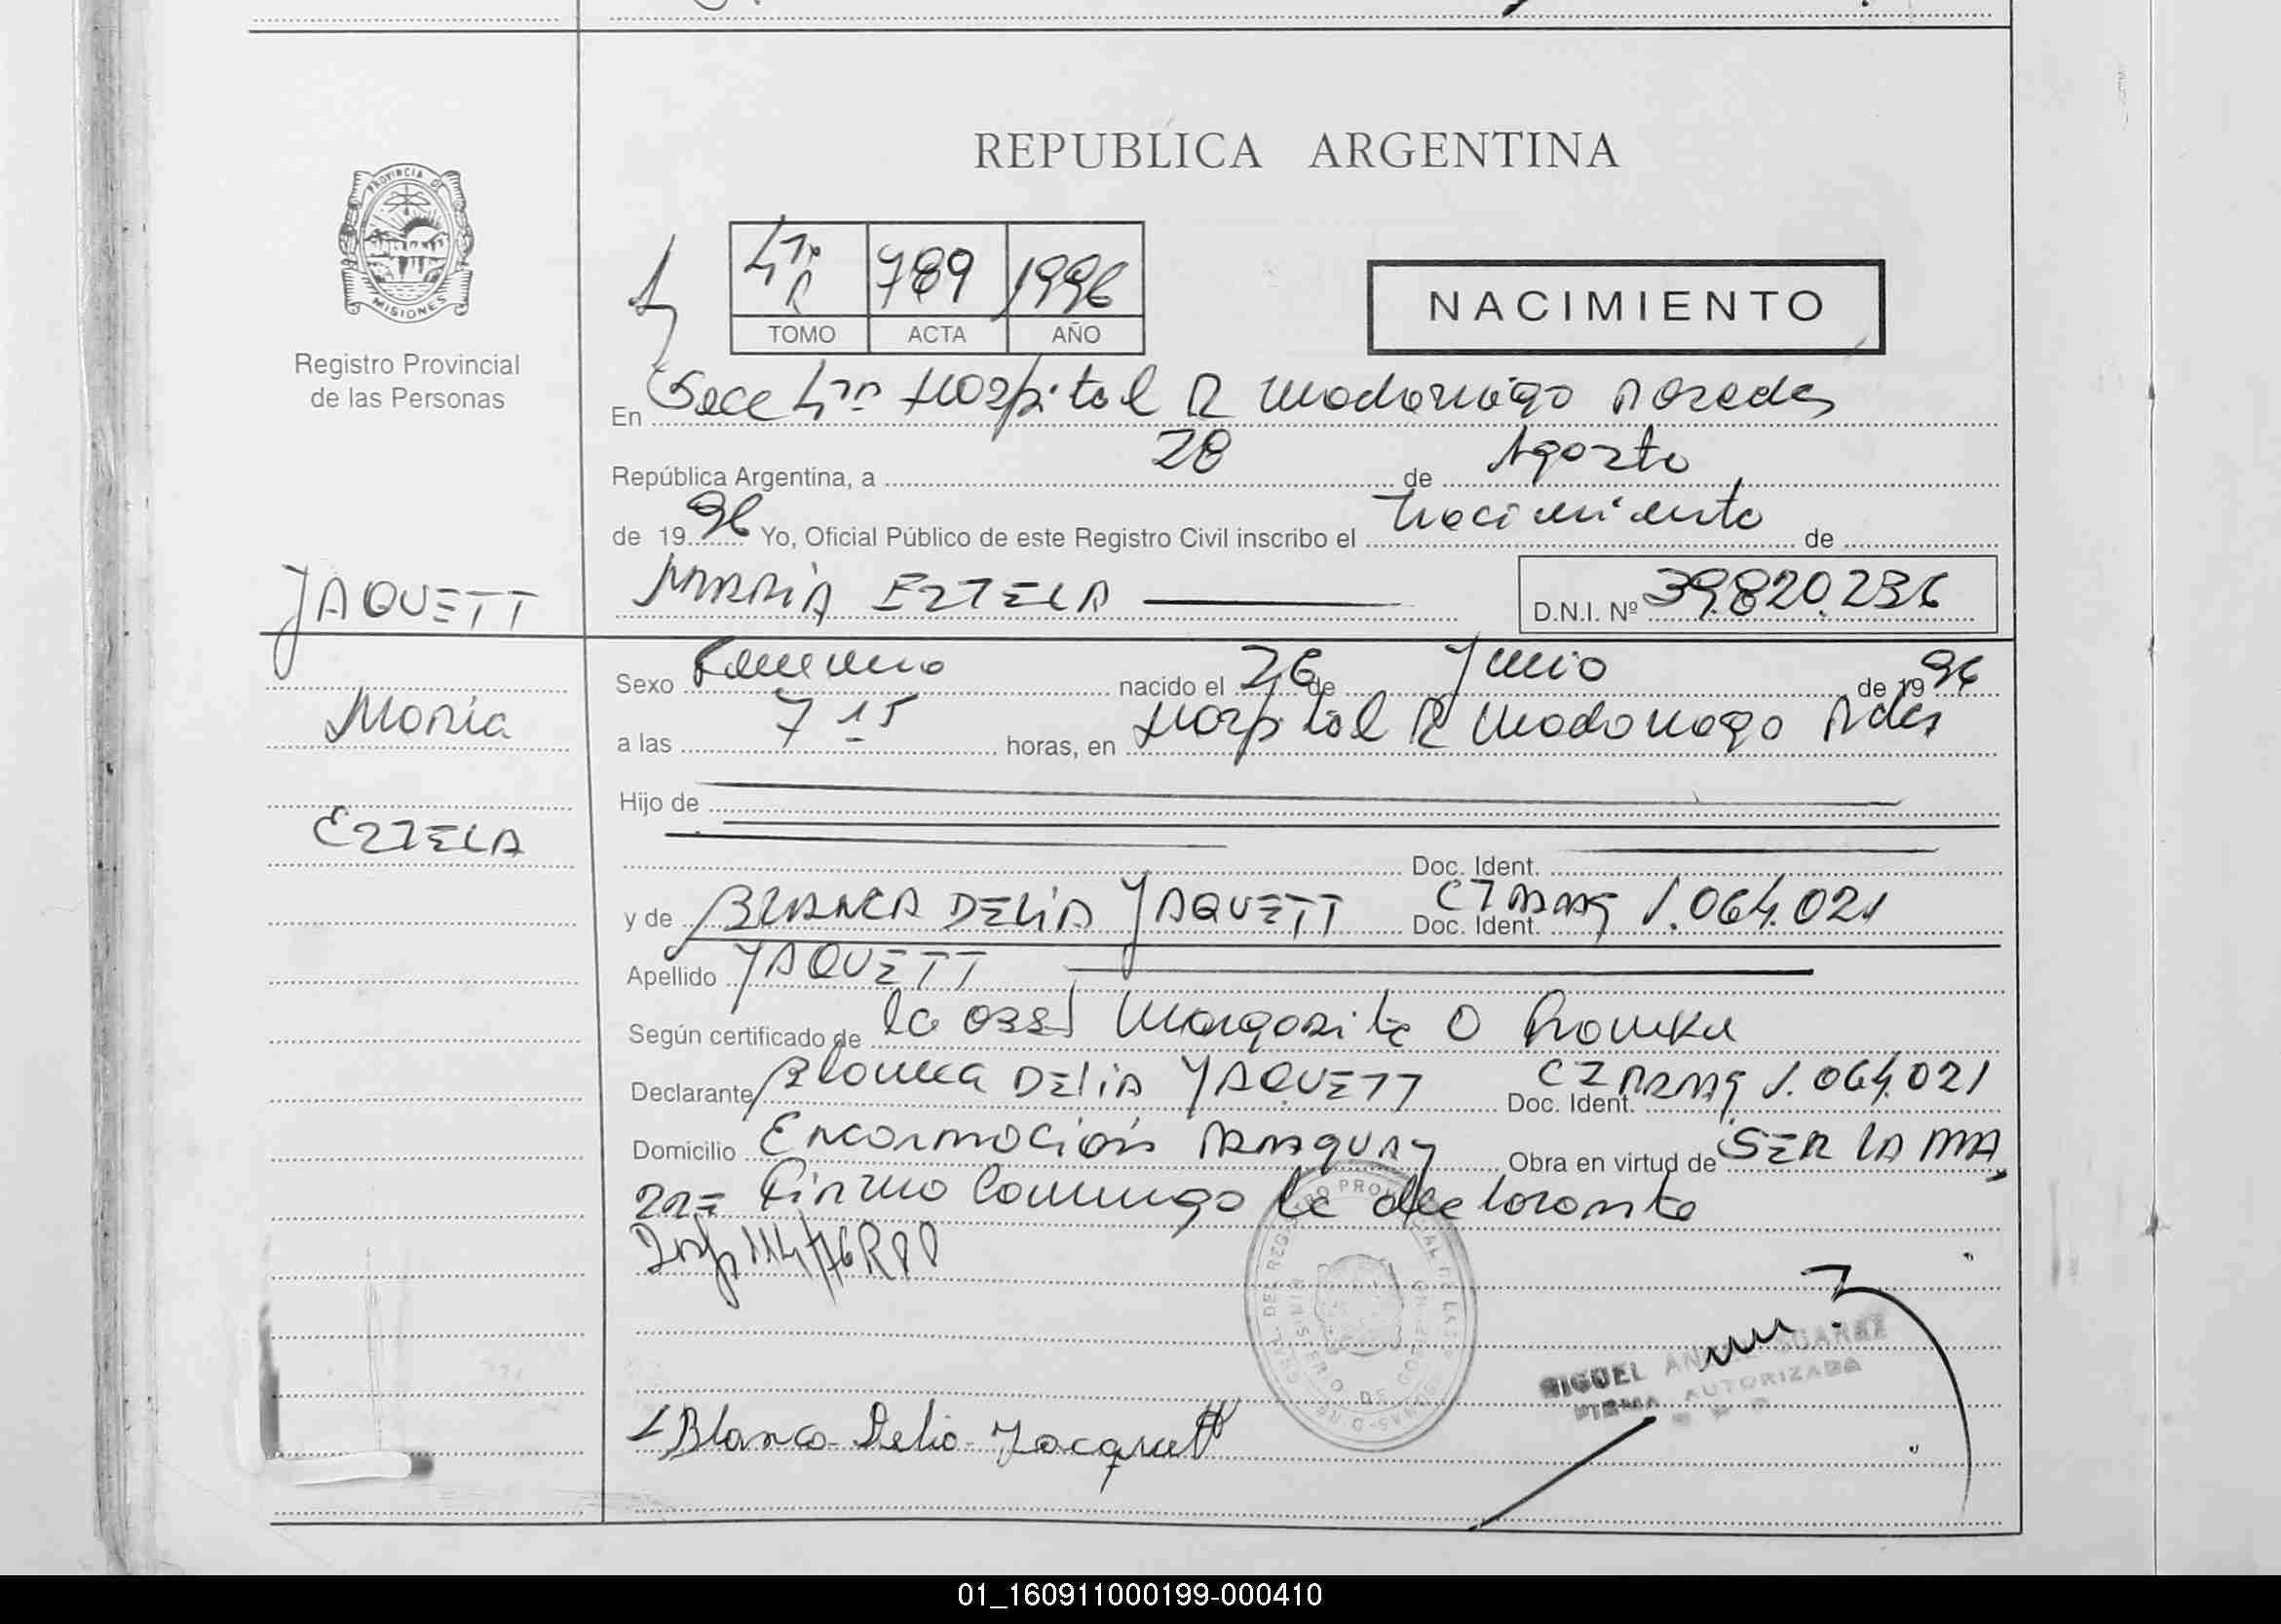 REPUBLICA ARGENTINA
PROVINCIA DE
MISIONES
Registro Provincial
de las Personas
789 1996
TOMO ACTA AÑO
NACIMIENTO
En Secc Hospital R Madariaga Posadas
República Argentina, a 28 de Agosto
de 1996 Yo, Oficial Público de este Registro Civil inscribo el Nacimiento de
JAQUETT
MARIA ESTELA
D.N.I. Nº 39.820.236
Sexo Femenino nacido el 26 de Junio de 1996
Maria
a las 7 15 horas, en Hospital R Madariaga Pdas
Hijo de
ESTELA
Doc. Ident.
y de BLANCA DELIA JAQUETT Doc. Ident. CI PARAG 1.064.021
Apellido JAQUETT
Según certificado de la obst Margarita O
Declarante Blanca DELIA JAQUETT Doc. Ident. CI PARAG 1.064.021
Domicilio Encarnación PARAGUAY Obra en virtud de SER LA MA
DRE Firma Conmigo la declarante
MIGUEL ANGEL SUAREZ
FIRMA AUTORIZADA
Blanca Delia Jacquett
01_160911000199-000410